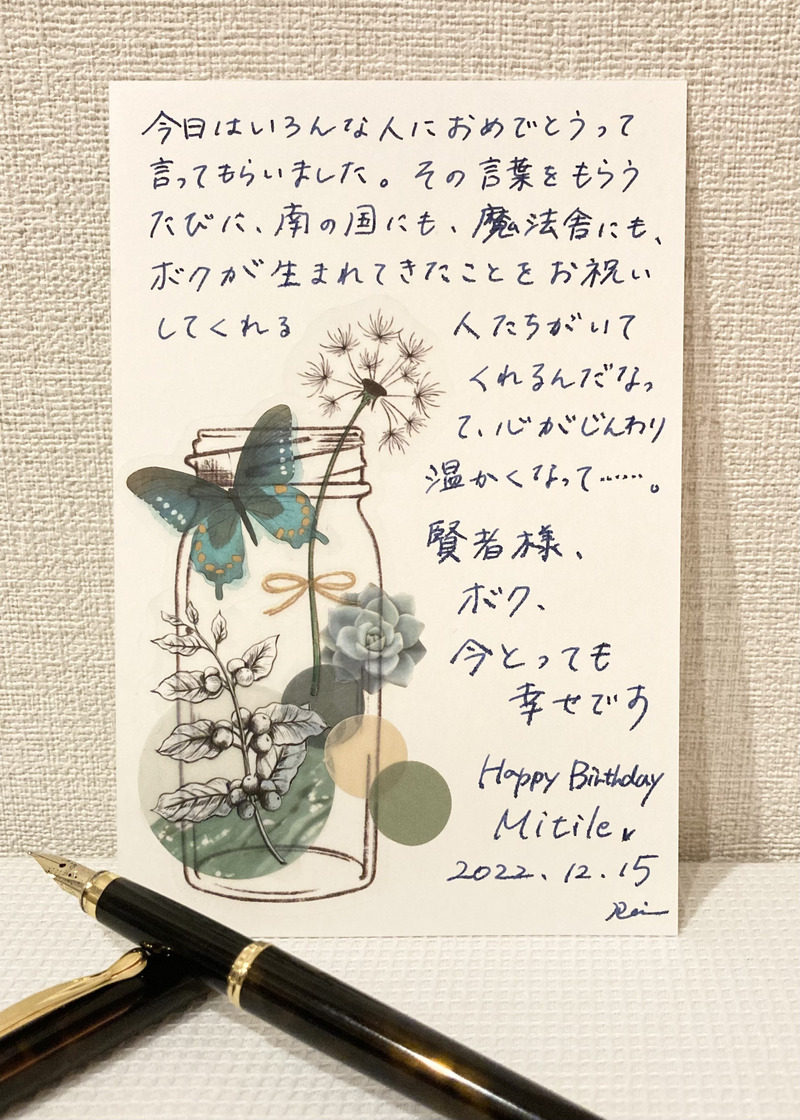 今日はいろんな人におめでとうって
言ってもらいました。その言葉をもらう
たびに、南の国にも、魔法舎にも、
ボクが生まれてきたことをお祝い
してくれる 人たちがいて
くれるんだなっ
て、心がじんわり
温かくなって……。
賢者様、
ボク、
今とっても
幸せです
Happy Birthday
Mitile
2022.12.15
Rei